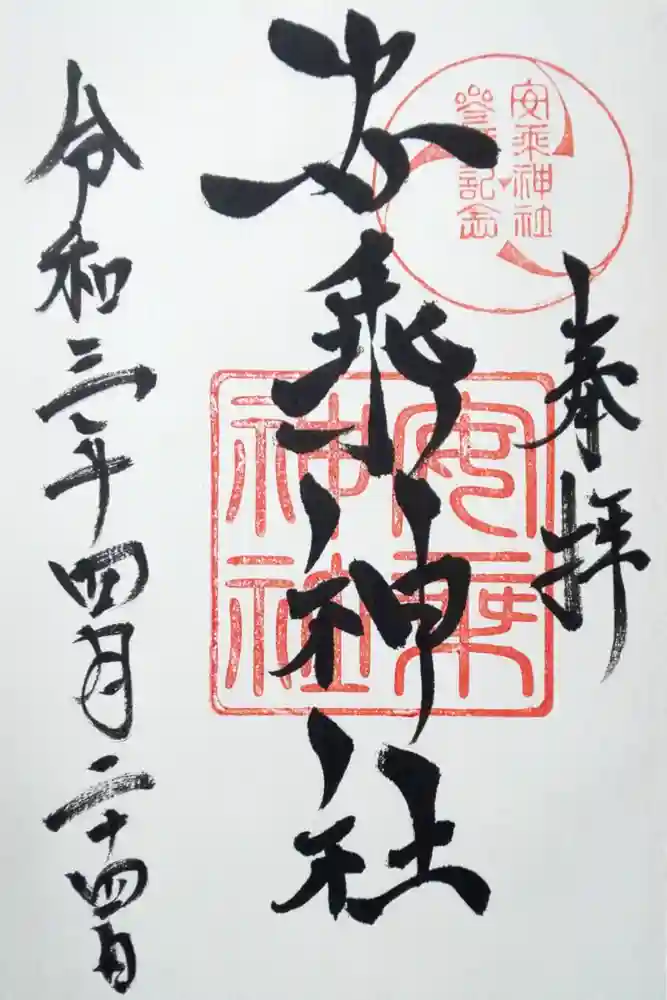 奉拝
安乗神社
参拝記念
安乗神社
安乗
神社
令和三年四月二十四日